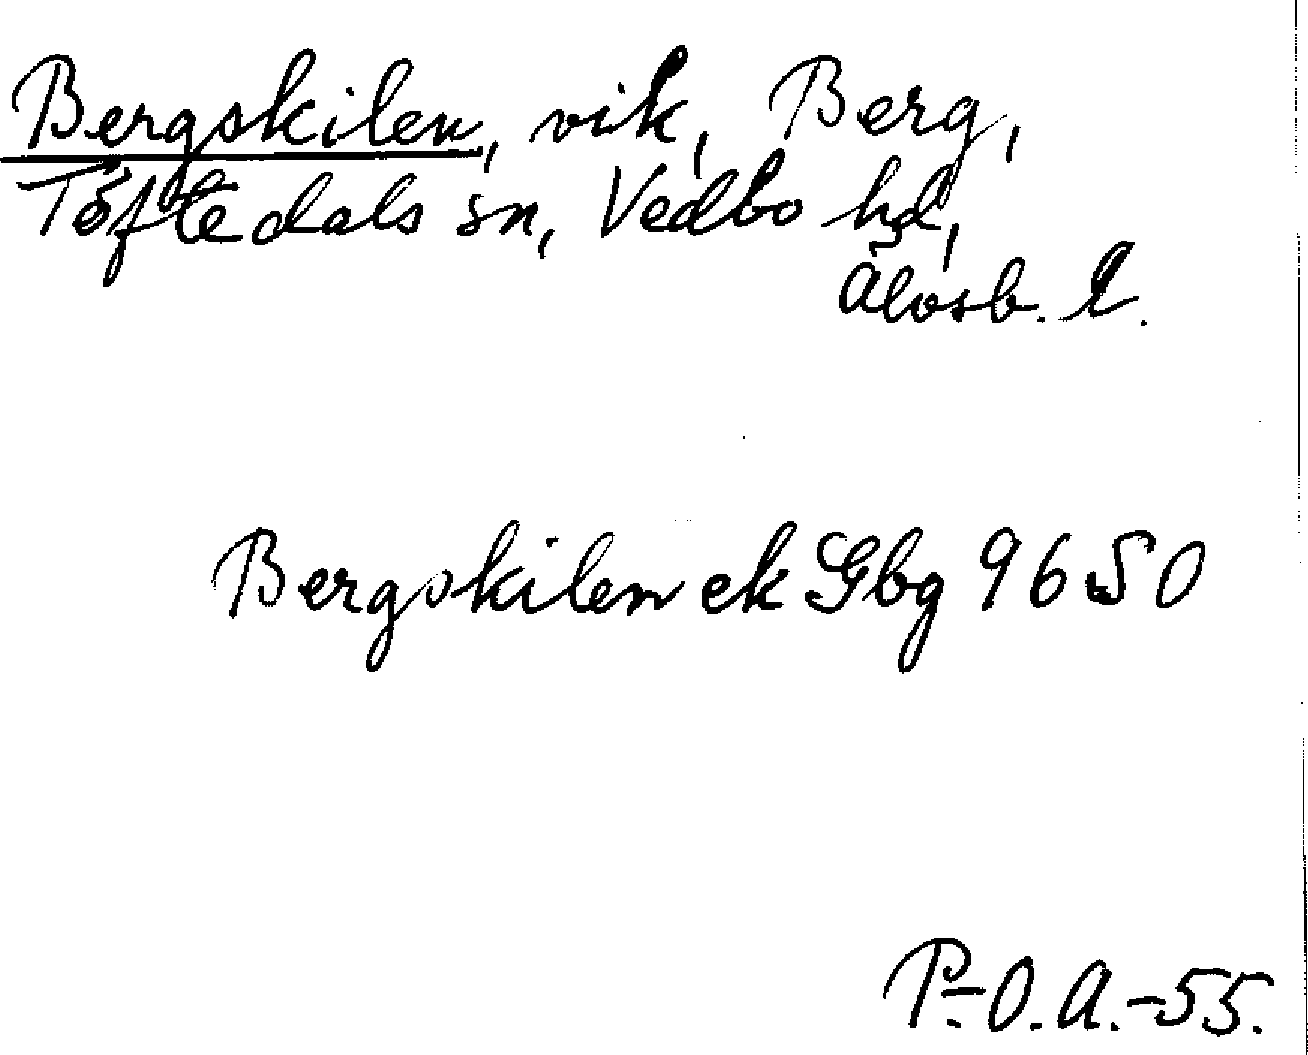 Bergskilen, vik, Berg,
Töftedals sn, Vedbo hd,
Älvsb. l.
Bergskilen ek Gbg 9650
P.-O. A. -55.